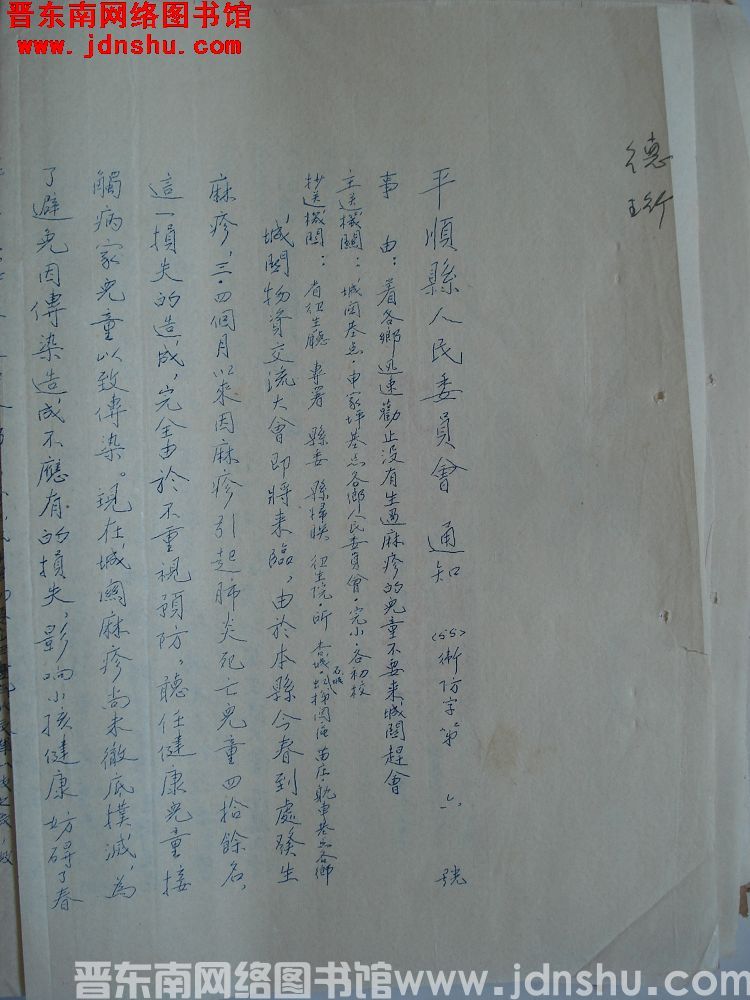 晋东南网络图书馆
www.jdnshu.com
德
平順縣人民委員會 通知 <55>衛防字第 六 號
事 由：着各鄉迅速勸止没有生過麻疹的兒童不要来城関趕會
主送機関：城関基点·申家坪基点各鄉人民委員會·完小·各初校
抄送機関：省卫生廳 專署 縣委 縣 卫生院·所 各鄉
城関物資交流大會即將来臨，由於本縣今春到處發生
麻疹，三·四個月以來因麻疹引起肺炎死亡兒童四拾餘名，
這一損失的造成，完全由於不重視預防，聽任健康兒童接
觸病家兒童以致傳染。現在城関麻疹尚未徹底撲滅，為
了避免因傳染造成不應有的損失，影响小孩健康妨碍了春
晋东南网络图书馆www.jdnshu.com